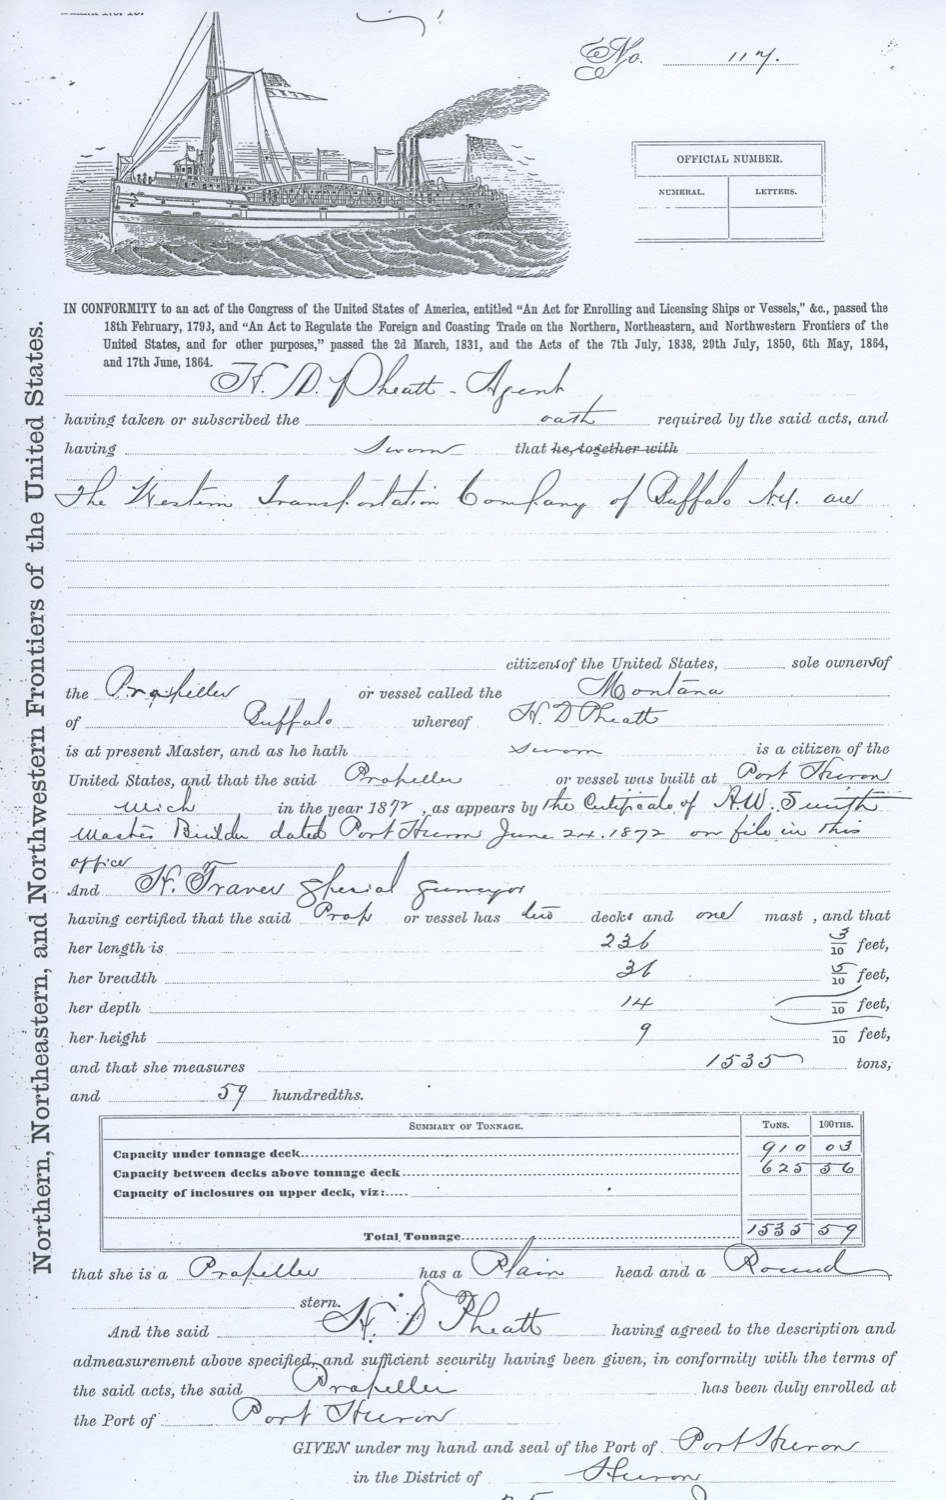 No. 117.
OFFICIAL NUMBER.
NUMERAL. LETTERS.
IN CONFORMITY to an act of the Congress of the United States of America, entitled "An Act for Enrolling and Licensing Ships or Vessels," &c., passed the
18th February, 1793, and "An Act to Regulate the Foreign and Coasting Trade on the Northern, Northeastern, and Northwestern Frontiers of the
United States, and for other purposes," passed the 2d March, 1831, and the Acts of the 7th July, 1838, 29th July, 1850, 6th May, 1864,
and 17th June, 1864.
H. D. Pheatt - Agent
having taken or subscribed the oath required by the said acts, and
having Sworn that he, together with
The Western Transportation Company of Buffalo N.Y. are
citizens of the United States, sole owners of
the Propeller or vessel called the Montana
of Buffalo whereof H D Pheatt
is at present Master, and as he hath sworn is a citizen of the
United States, and that the said Propeller or vessel was built at Port Huron
Mich in the year 1872, as appears by the Certificate of A.W. Smith
Master Builder dated Port Huron June 24. 1872 on file in this
office
And H. Traver Special Surveyor
having certified that the said Prop or vessel has two decks and one mast, and that
her length is 236 3/10 feet,
her breadth 36 5/10 feet,
her depth 14 /10 feet,
her height 9 /10 feet,
and that she measures 1535 tons,
and 59 hundredths.
SUMMARY OF TONNAGE. TONS. 100THS.
Capacity under tonnage deck 910 03
Capacity between decks above tonnage deck 625 56
Capacity of inclosures on upper deck, viz:
Total Tonnage 1535 59
that she is a Propeller has a Plain head and a Round
stern.
And the said H. D Pheatt having agreed to the description and
admeasurement above specified, and sufficient security having been given, in conformity with the terms of
the said acts, the said Propeller has been duly enrolled at
the Port of Port Huron
GIVEN under my hand and seal of the Port of Port Huron
in the District of Huron
Northern, Northeastern, and Northwestern Frontiers of the United States.